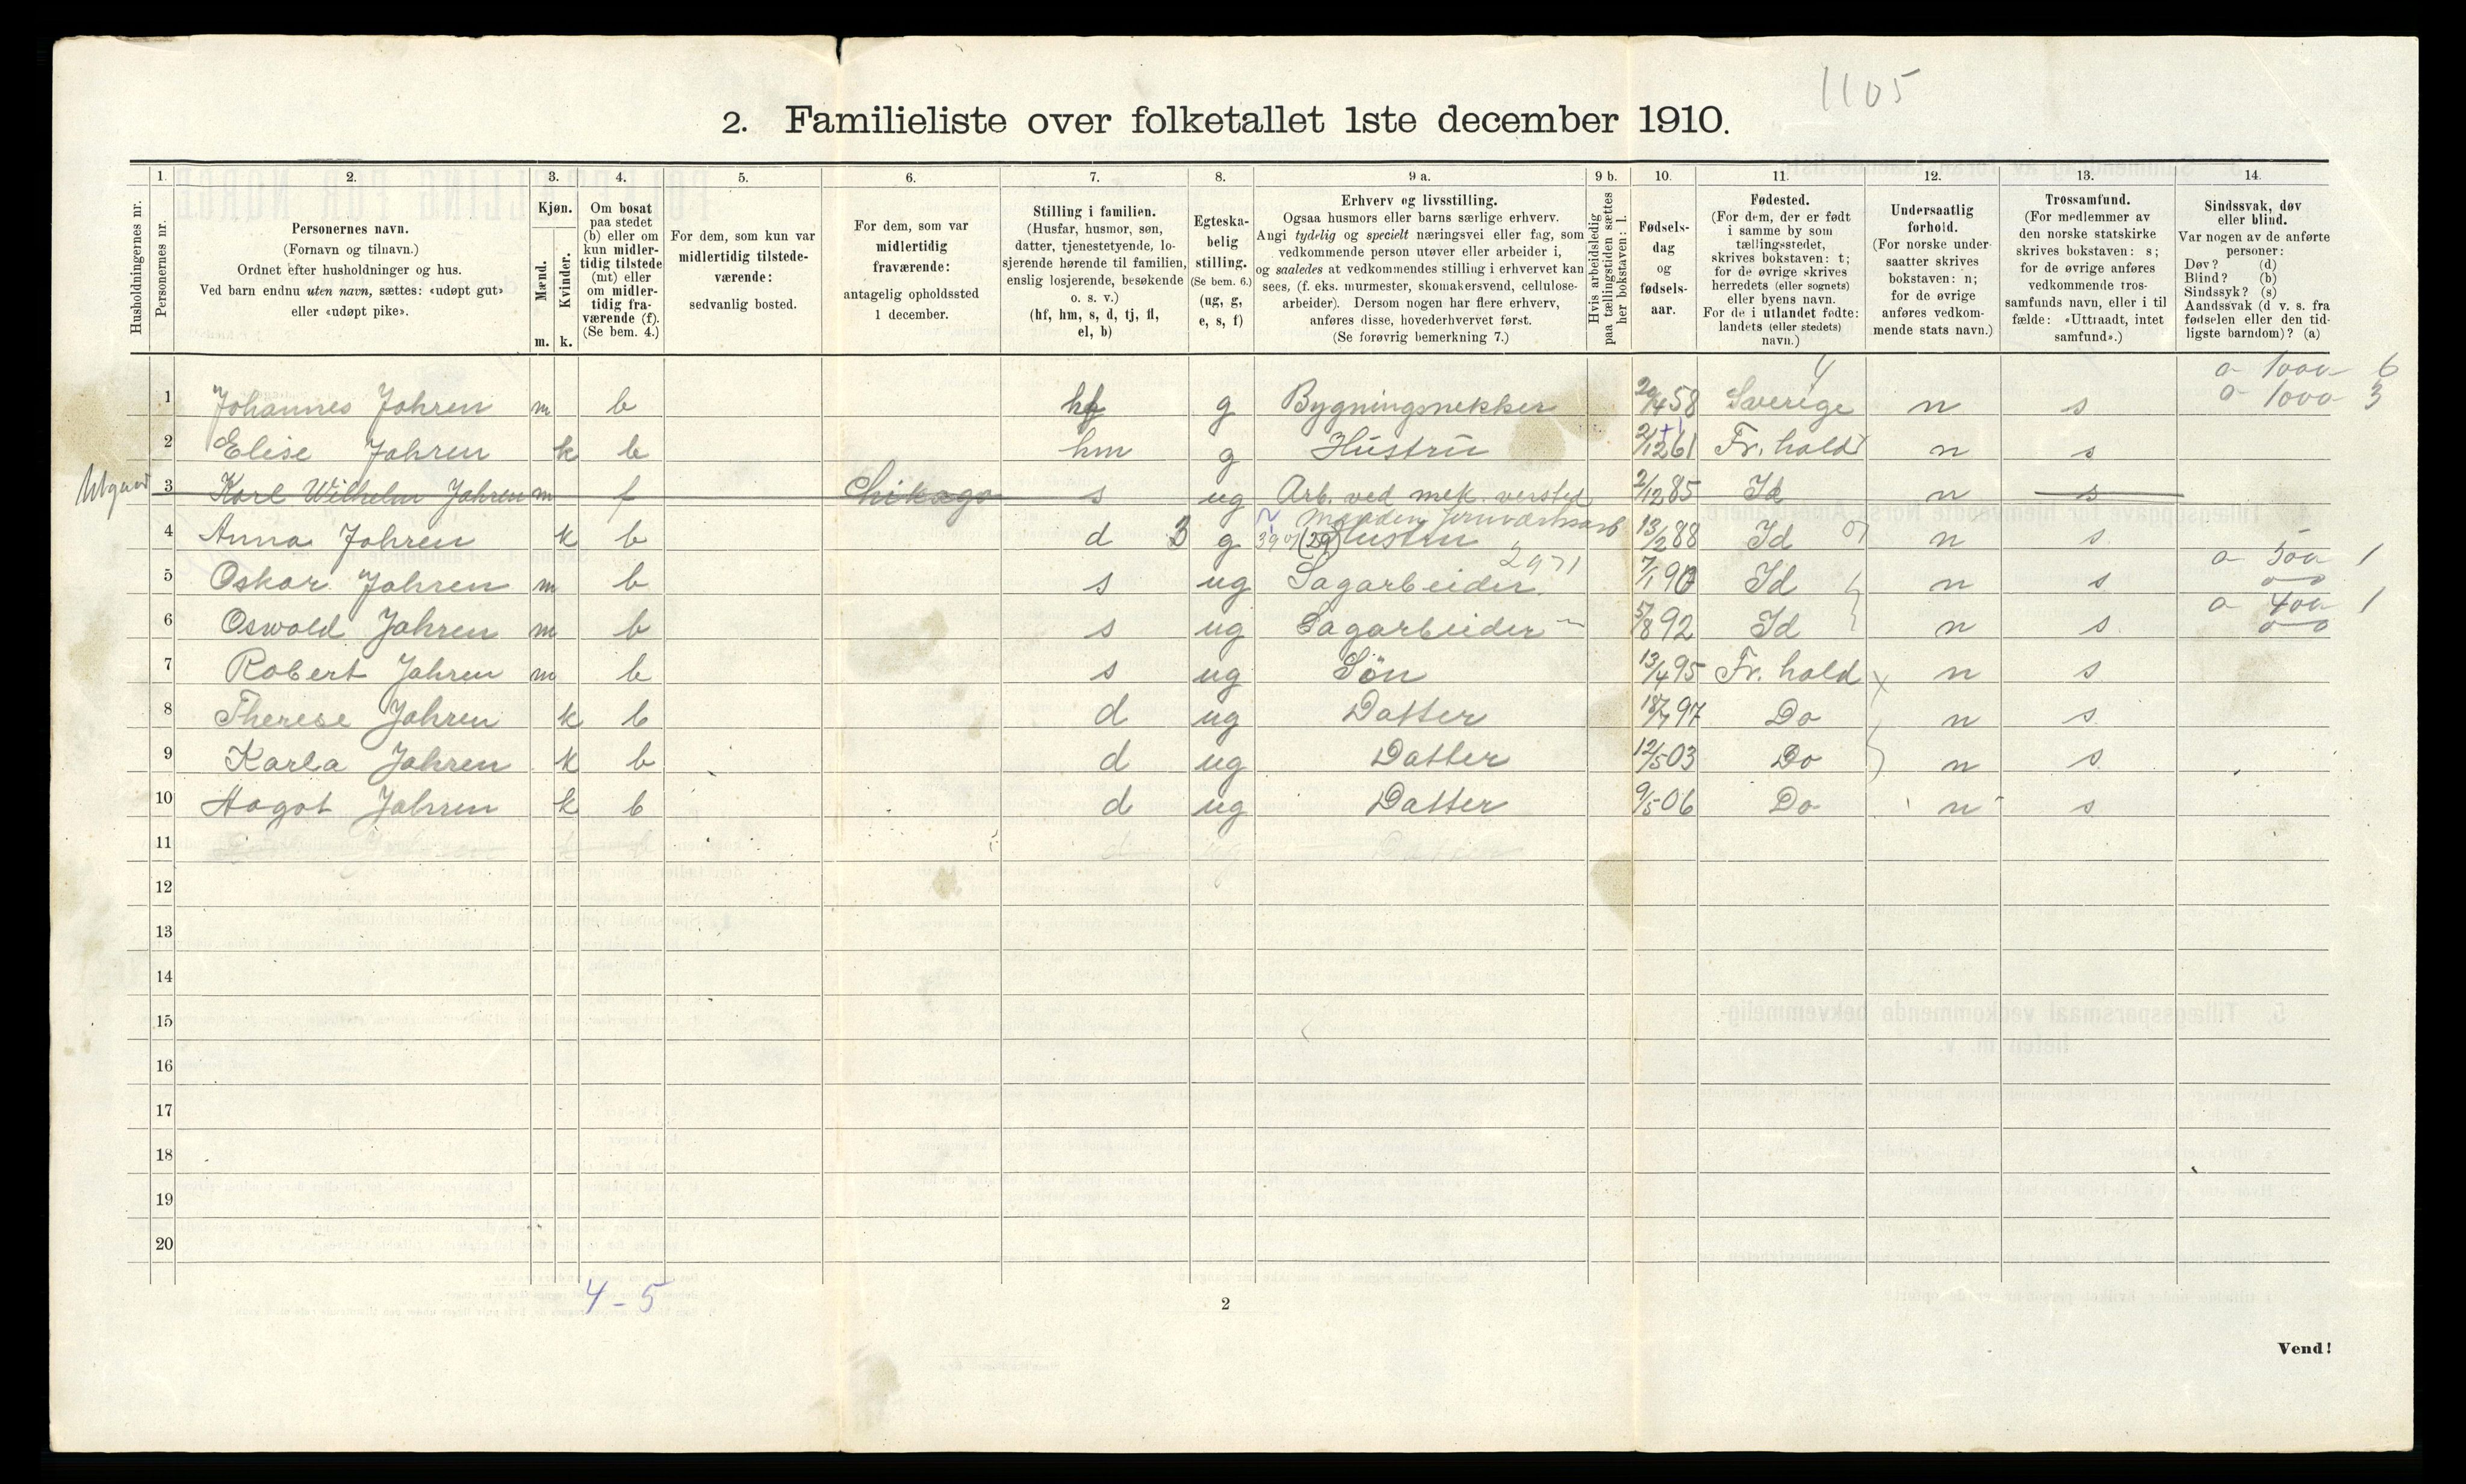 1105
2. Familieliste over folketallet 1ste december 1910.
Husholdningernes nr.
1. Personernes nr.
2. Personernes navn.
(Fornavn og tilnavn.)
Ordnet efter husholdninger og hus.
Ved barn endnu uten navn, sættes: «udøpt gut»
eller «udøpt pike».
3. Kjøn.
Mænd. Kvinder.
m. k.
4. Om bosat
paa stedet
(b) eller om
kun midler-
tidig tilstede
(mt) eller
om midler-
tidig fra-
værende (f).
(Se bem. 4.)
5. For dem, som kun var
midlertidig tilstede-
værende:
sedvanlig bosted.
6. For dem, som var
midlertidig
fraværende:
antagelig opholdssted
1 december.
7. Stilling i familien.
(Husfar, husmor, søn,
datter, tjenestetyende, lo-
sjerende hørende til familien,
enslig losjerende, besøkende
o. s. v.)
(hf, hm, s, d, tj, fl,
el, b)
8. Egteska-
belig
stilling.
(Se bem. 6.)
(ug, g,
e, s, f)
9 a. Erhverv og livsstilling.
Ogsaa husmors eller barns særlige erhverv.
Angi tydelig og specielt næringsvei eller fag, som
vedkommende person utøver eller arbeider i,
og saaledes at vedkommendes stilling i erhvervet kan
sees, (f. eks. murmester, skomakersvend, cellulose-
arbeider). Dersom nogen har flere erhverv,
anføres disse, hovederhvervet først.
(Se forøvrig bemerkning 7.)
9 b. Hvis arbeidsledig
paa tællingstiden sættes
her bokstaven: l.
10. Fødsels-
dag
og
fødsels-
aar.
11. Fødested.
(For dem, der er født
i samme by som
tællingsstedet,
skrives bokstaven: t;
for de øvrige skrives
herredets (eller sognets)
eller byens navn.
For de i utlandet fødte:
landets (eller stedets)
navn.)
12. Undersaatlig
forhold.
(For norske under-
saatter skrives
bokstaven: n;
for de øvrige
anføres vedkom-
mende stats navn.)
13. Trossamfund.
(For medlemmer av
den norske statskirke
skrives bokstaven: s;
for de øvrige anføres
vedkommende tros-
samfunds navn, eller i til
fælde: «Uttraadt, intet
samfund».)
14. Sindssvak, døv
eller blind.
Var nogen av de anførte
personer:
Døv? (d)
Blind? (b)
Sindssyk? (s)
Aandssvak (d v. s. fra
fødselen eller den tid-
ligste barndom)? (a)
o 1000 6
1 Johannes Jahren m b hf g Bygningsnekker 29/4 58 Sverige n s o 1000 3
2 Elise Jahren k b hm g Hustru 2/12 61 Fr. hald n s
3 Karl Wilhelm Jahren m f Chikago s ug Arb. ved mek. versted 2/12 85 Id n s
4 Anna Jahren k b d 3 g Hustru 13/2 88 Id n s
5 Oskar Jahren m b s ug Sagarbeider 2971 7/1 90 Id n s o 500 1
6 Oswald Jahren m b s ug Sagarbeider 5/8 92 Id n s o 400 1
7 Robert Jahren m b s ug Søn 13/4 95 Fr. hald n s
8 Therese Jahren k b d ug Datter 18/7 97 Do n s
9 Karla Jahren k b d ug Datter 12/5 03 Do n s
10 Hagot Jahren k b d ug Datter 9/5 06 Do n s
11
12
13
14
15
16
17
18
19
20
4-5
2
Vend!